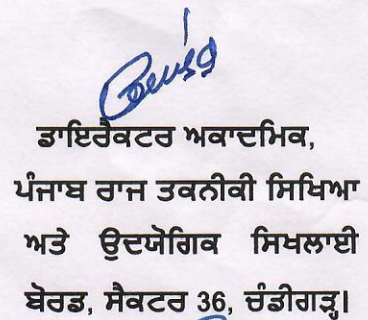 ਡਾਇਰੈਕਟਰ ਅਕਾਦਮਿਕ,
ਪੰਜਾਬ ਰਾਜ ਤਕਨੀਕੀ ਸਿਖਿਆ
ਅਤੇ ਉਦਯੋਗਿਕ ਸਿਖਲਾਈ
ਬੋਰਡ, ਸੈਕਟਰ 36, ਚੰਡੀਗੜ੍ਹ।